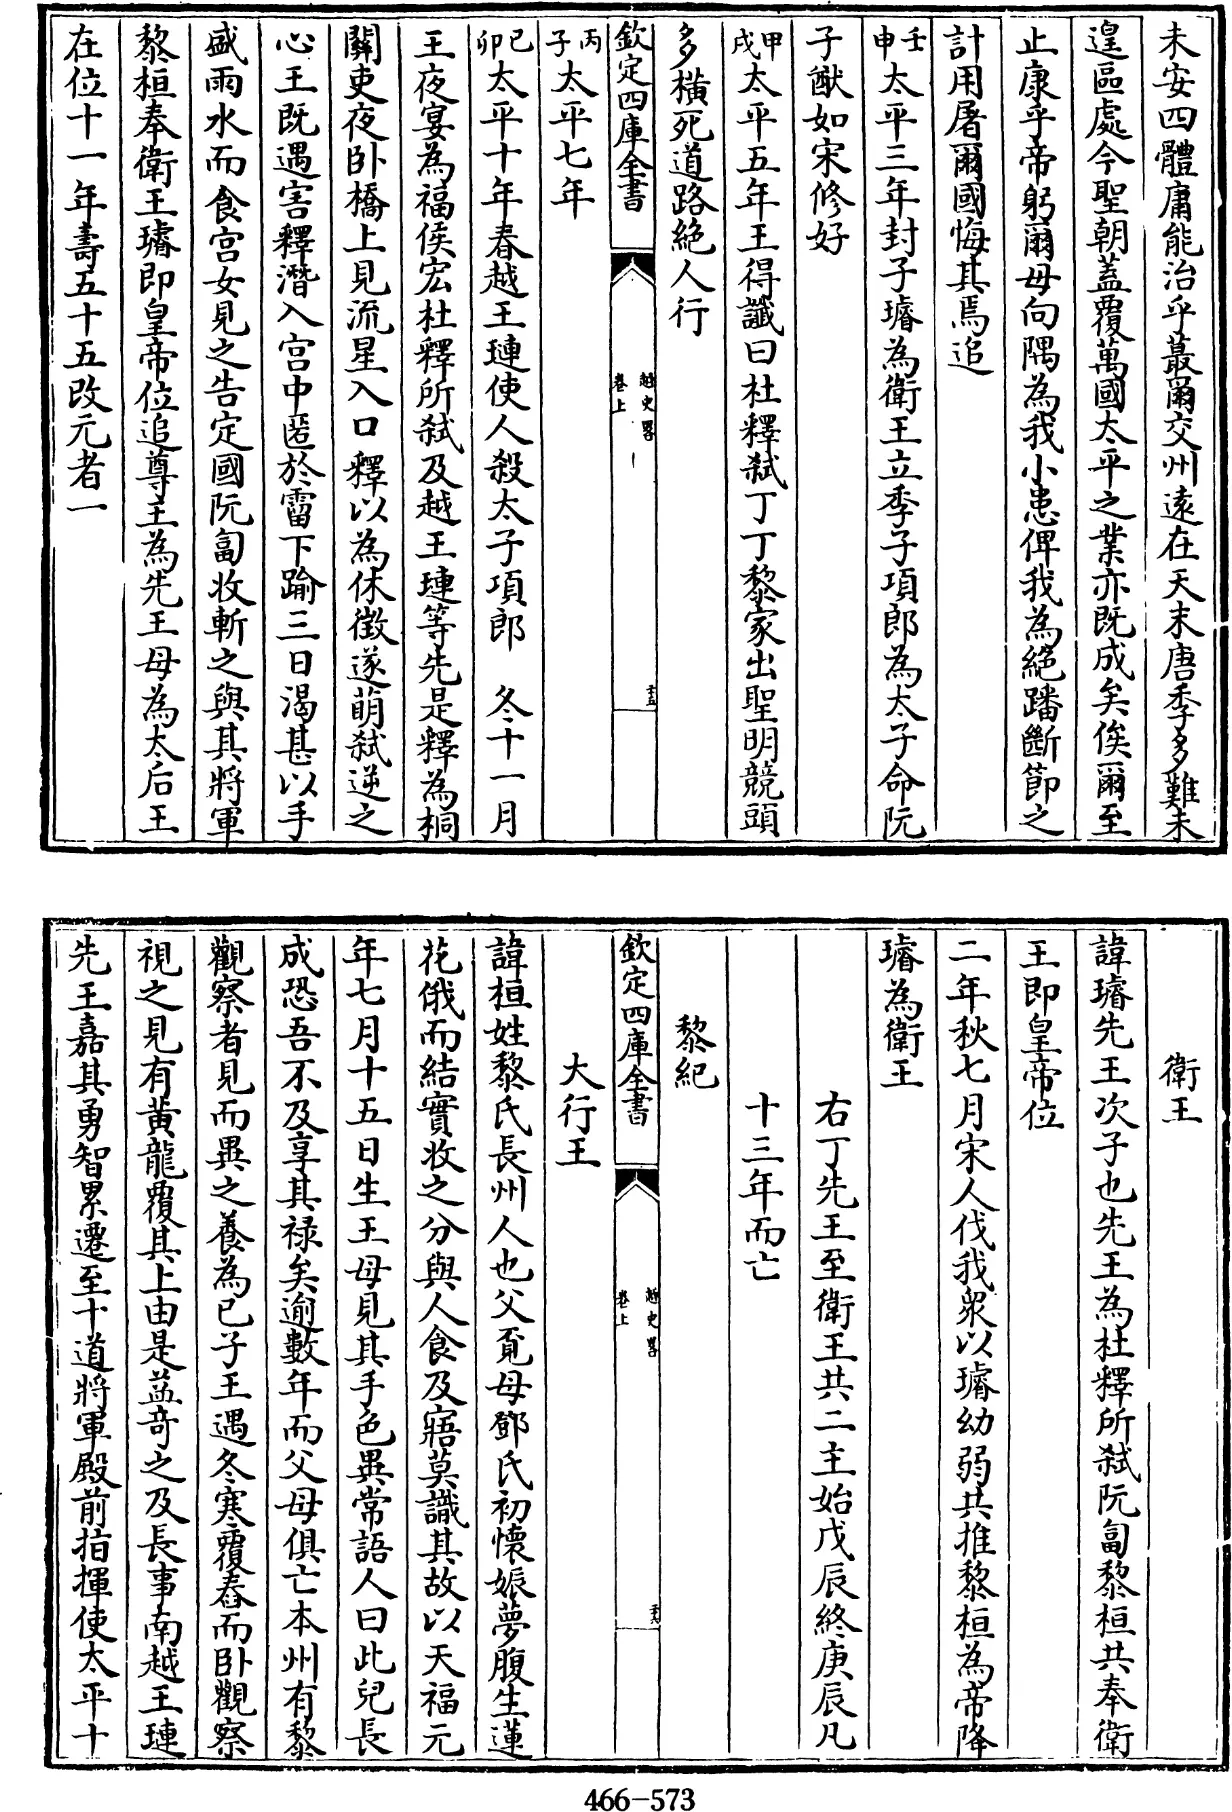 未安四體庸能治乎蕞爾交州遠在天末唐季多難未
遑區處今聖朝蓋覆萬國太平之業亦既成矣俟爾至
止康乎帝躬爾毋向隅為我小患俾我為絕蹯斷節之
計用屠爾國悔其焉追
壬申太平三年封子璿為衛王立季子項郎為太子命阮
子猷如宋修好
甲戌太平五年王得讖曰杜釋弒丁丁黎家出聖明競頭
多橫死道路絕人行
欽定四庫全書
越史畧
卷上
丙子太平七年
己卯太平十年春越王璉使人殺太子項郎 冬十一月
王夜宴為福侯宏杜釋所弒及越王璉等先是釋為桐
關吏夜卧橋上見流星入口釋以為休徵遂萌弒逆之
心王既遇害釋潛入宮中匿於霤下踰三日渴甚以手
盛雨水而食宮女見之告定國阮匐收斬之與其將軍
黎桓奉衛王璿即皇帝位追尊王為先王母為太后王
在位十一年壽五十五改元者一
衛王
諱璿先王次子也先王為杜釋所弒阮匐黎桓共奉衛
王即皇帝位
二年秋七月宋人伐我衆以璿幼弱共推黎桓為帝降
璿為衛王
右丁先王至衛王共二主始戊辰終庚辰凡
十三年而亡
黎紀
欽定四庫全書
越史畧
卷上
大行王
諱桓姓黎氏長州人也父覓母鄧氏初懷娠夢腹生蓮
花俄而結實收之分與人食及寤莫識其故以天福元
年七月十五日生王母見其手色異常語人曰此兒長
成恐吾不及享其祿矣逾數年而父母俱亡本州有黎
觀察者見而異之養為已子王遇冬寒覆舂而卧觀察
視之見有黃龍覆其上由是益奇之及長事南越王璉
先王嘉其勇智累遷至十道將軍殿前指揮使太平十
466-573